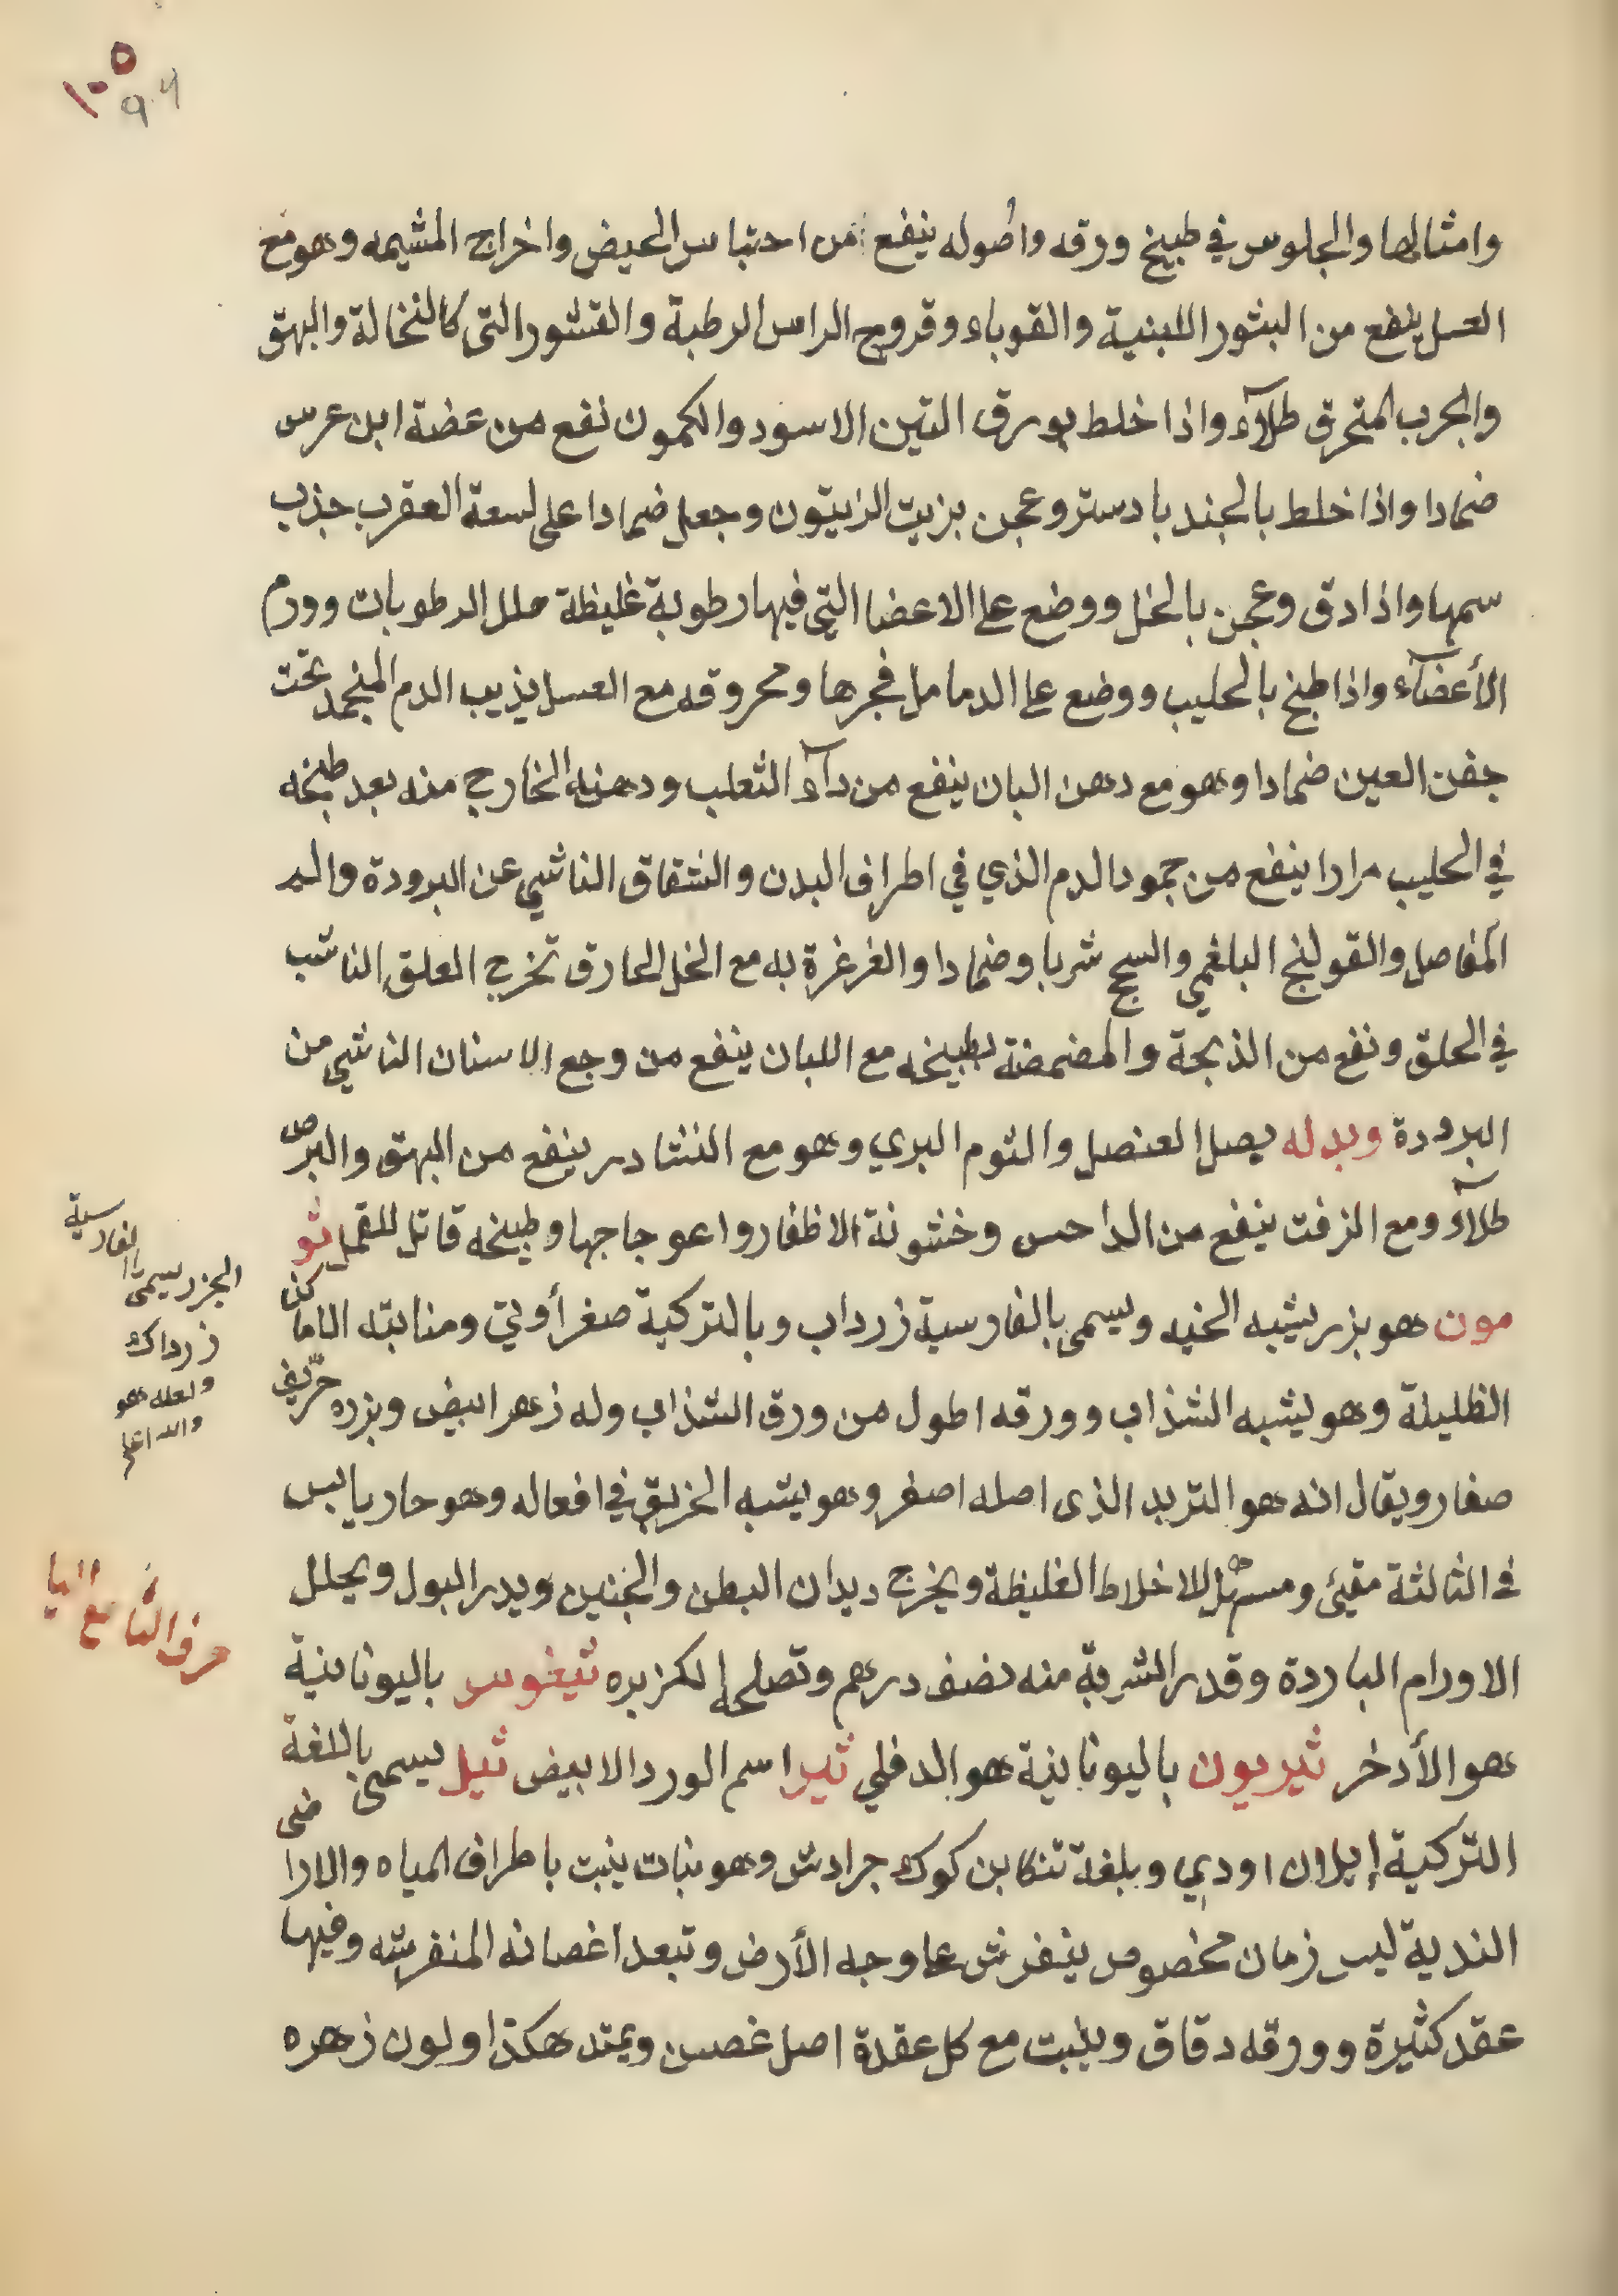 ١٠٥
٩٤
وامثالها والجلوس في طبيخ ورقه واصوله ينفع من احتباس الحيض واخراج المشيمه وهو مع
العسل ينفع من البثور اللبنية والقوباء وقروح الراس الرطبة والقشور التى كالنخالة والبهق
والجرب المتحرق طلآء واذا خلط بورق التين الاسود والكمون نفع من عضة ابن عرس
ضمادا واذا خلط بالجند بادستر وعجن بزيت الزيتون وجعل ضمادا على لسعة العقرب جذب
سمها واذا دق وعجن بالخل ووضع على الاعضا التي فيها رطوبة غليظة حلل الرطوبات وورم
الأعضآء واذا طبخ بالحليب ووضع على الدمامل فجرها ومحروقه مع العسل يذيب الدم المنجمد تحت
جفن العين ضمادا وهو مع دهن البان ينفع من دآء الثعلب ودهنه الخارج منه بعد طبخه
في الحليب مرارا ينفع من جمود الدم الذي في اطراف البدن والشقاق الناشي عن البرودة والم
المفاصل والقولنج البلغمي والسحج شربا وضمادا والغرغرة به مع الخل الحارق تخرج العلق الناشب
في الحلق ونفع من الذبحة والمضمضة بطبيخه مع اللبان ينفع من وجع الاسنان الناشي من
البرودة وبدله بصل العنصل والثوم البري وهو مع النشادر ينفع من البهق والبرص
طلآء ومع الزفت ينفع من الداحس وخشونة الاظفار واعوجاجها وطبيخه قاتل للقمل ثو
مون هو بزر يشبه الخيه ويسمى بالفارسية زرداب وبالتركية صغر أوتي ومنابته الاماكن
الظليلة وهو يشبه الشذاب وورقه اطول من ورق الشذاب وله زهر ابيض وبزره حرّيف
صغار ويقال انه هو التربد الذى اصله اصفر وهو يشبه الخربق في افعاله وهو حار يابس
في الثالثة مقيئ ومسهل للاخلاط الغليظة ويخرج ديدان البطن والجنين ويدر البول ويحلل
الاورام الباردة وقدر الشربة منه نصف درهم وتصلحه الكزبره ثيغوس باليونانية
هو الأذخر ثيريون باليونانية هو الدفلي ثيرا اسم الورد الابيض ثيل يسمى باللغة
التركية إيلان اودي وبلغة تنكابن كوك جرادش وهو نبات ينبت باطراف المياه والارا
ضى
الندية ليس زمان مخصوص ينفرش على وجه الأرض وتبعد اغصانه المنفرشه وفيها
عقد كثيرة وورقه دقاق وينبت مع كل عقدة اصل غصن ويمتد هكذا ولون زهره
الجزر يسمى بالفارسية
زرداك
ولعله هو
والله اعلم
حرف الثاء مع اليا